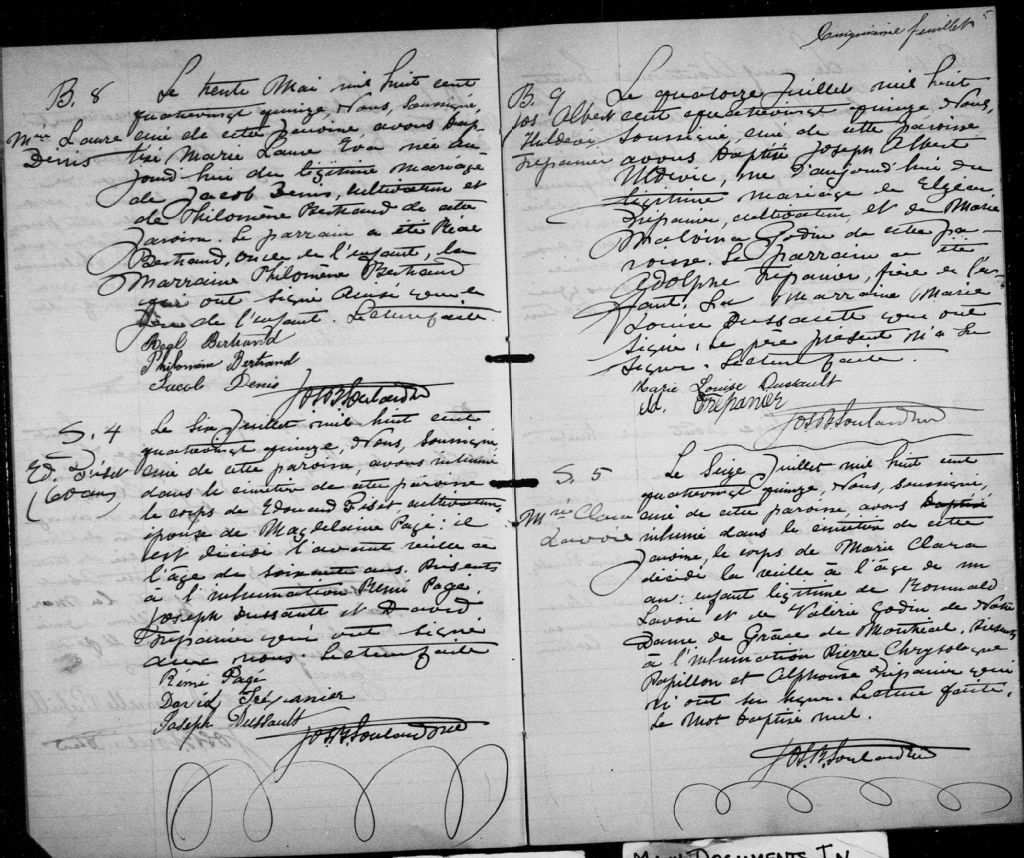 B. 8
Mie Laure
Denis
Le trente Mai mil huit cent
quatrevingt quinze, Nous, soussigné,
curé de cette paroisse, avons bap-
tisé Marie Laure Eva née au-
jourd'hui du légitime mariage
de Jacob Denis, cultivateur et
de Philomène Bertrand de cette
paroisse. Le parrain a été Réal
Bertrand, oncle de l'enfant, la
Marraine Philomène Bertrand
qui ont signé ainsi que le
père de l'enfant. Lecture faite.
Réal Bertrand
Philomène Bertrand
Jacob Denis
S. 4
Ed. Piset
(60 ans)
Le Six Juillet mil huit cent
quatrevingt quinze, Nous, soussigné,
curé de cette paroisse, avons inhumé
dans le cimetière de cette paroisse
le corps de Edouard Piset, cultivateur,
épouse de Magdelaine Pagé: il
est décédé l'avant veille à
l'âge de soixante ans. Présents
à l'inhumation Rémi Pagé,
Joseph Dussault et David
Trépanier qui ont signé
avec nous. Lecture faite
Rémi Pagé
David Trépanier
Joseph Dussault
Cinquième feuillet
B. 9
Jos Albert
Trépanier
Le quatorze Juillet mil huit
cent quatrevingt quinze Nous,
Soussigné, curé de cette paroisse
avons baptisé Joseph Albert
né d'aujourd'hui du
légitime mariage de Elzéar
Trépanier, cultivateur, et de Marie
Malvina Godin de cette pa-
roisse. Le parrain a été
Adolphe Trépanier, frère de l'en-
fant; La Marraine Marie
Louise Dussault qui ont
signé, le père présent n'a su
signer. Lecture faite.
Marie Louise Dussault
Ad. Trépanier
S. 5
Mie Clara
Lavoie
Le Seize Juillet mil huit cent
quatrevingt quinze, Nous, soussigné,
curé de cette paroisse, avons baptisé
inhumé dans le cimetière de cette
paroisse, le corps de Marie Clara
décédé la veille à l'âge de un
an: enfant légitime de Romuald
Lavoie et de Valérie Godin de Notre
Dame de Grâce de Montréal. Présents
à l'inhumation Pierre Chrysologue
Papillon et Alphonse Trépanier qui
n'ont su signer. Lecture faite.
Le mot baptisé nul.